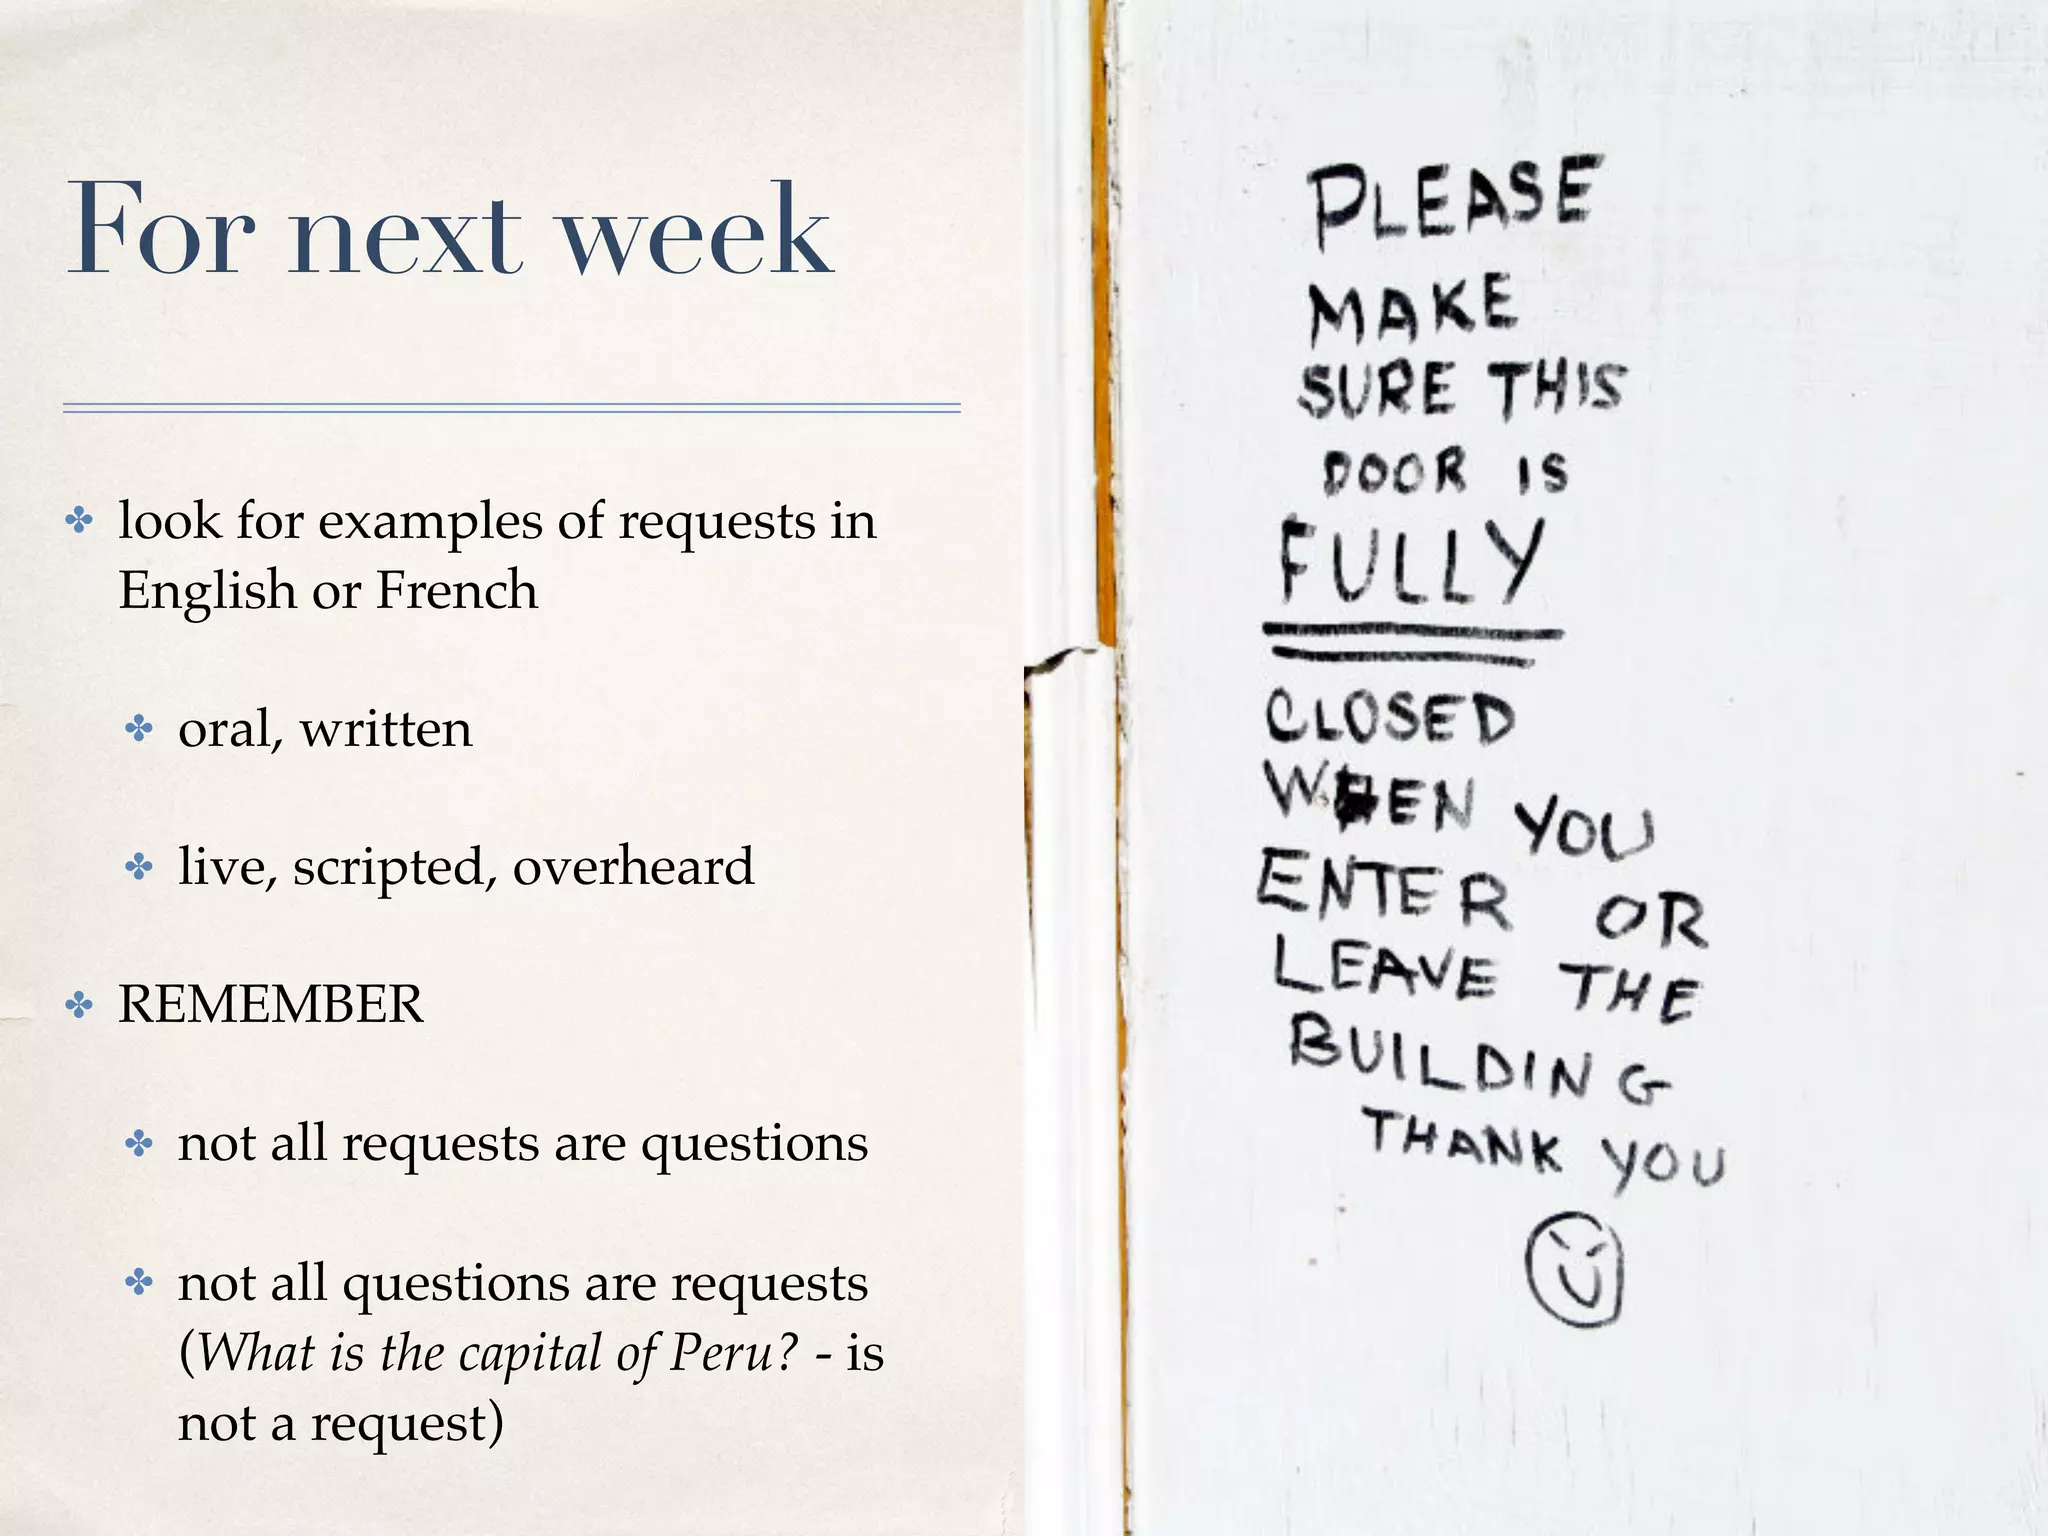 For next week
look for examples of requests in
English or French
oral, written
live, scripted, overheard
REMEMBER
not all requests are questions
not all questions are requests
(What is the capital of Peru? - is
not a request)
PLEASE
MAKE
SURE THIS
DOOR IS
FULLY
CLOSED
WHEN YOU
ENTER OR
LEAVE THE
BUILDING
THANK YOU